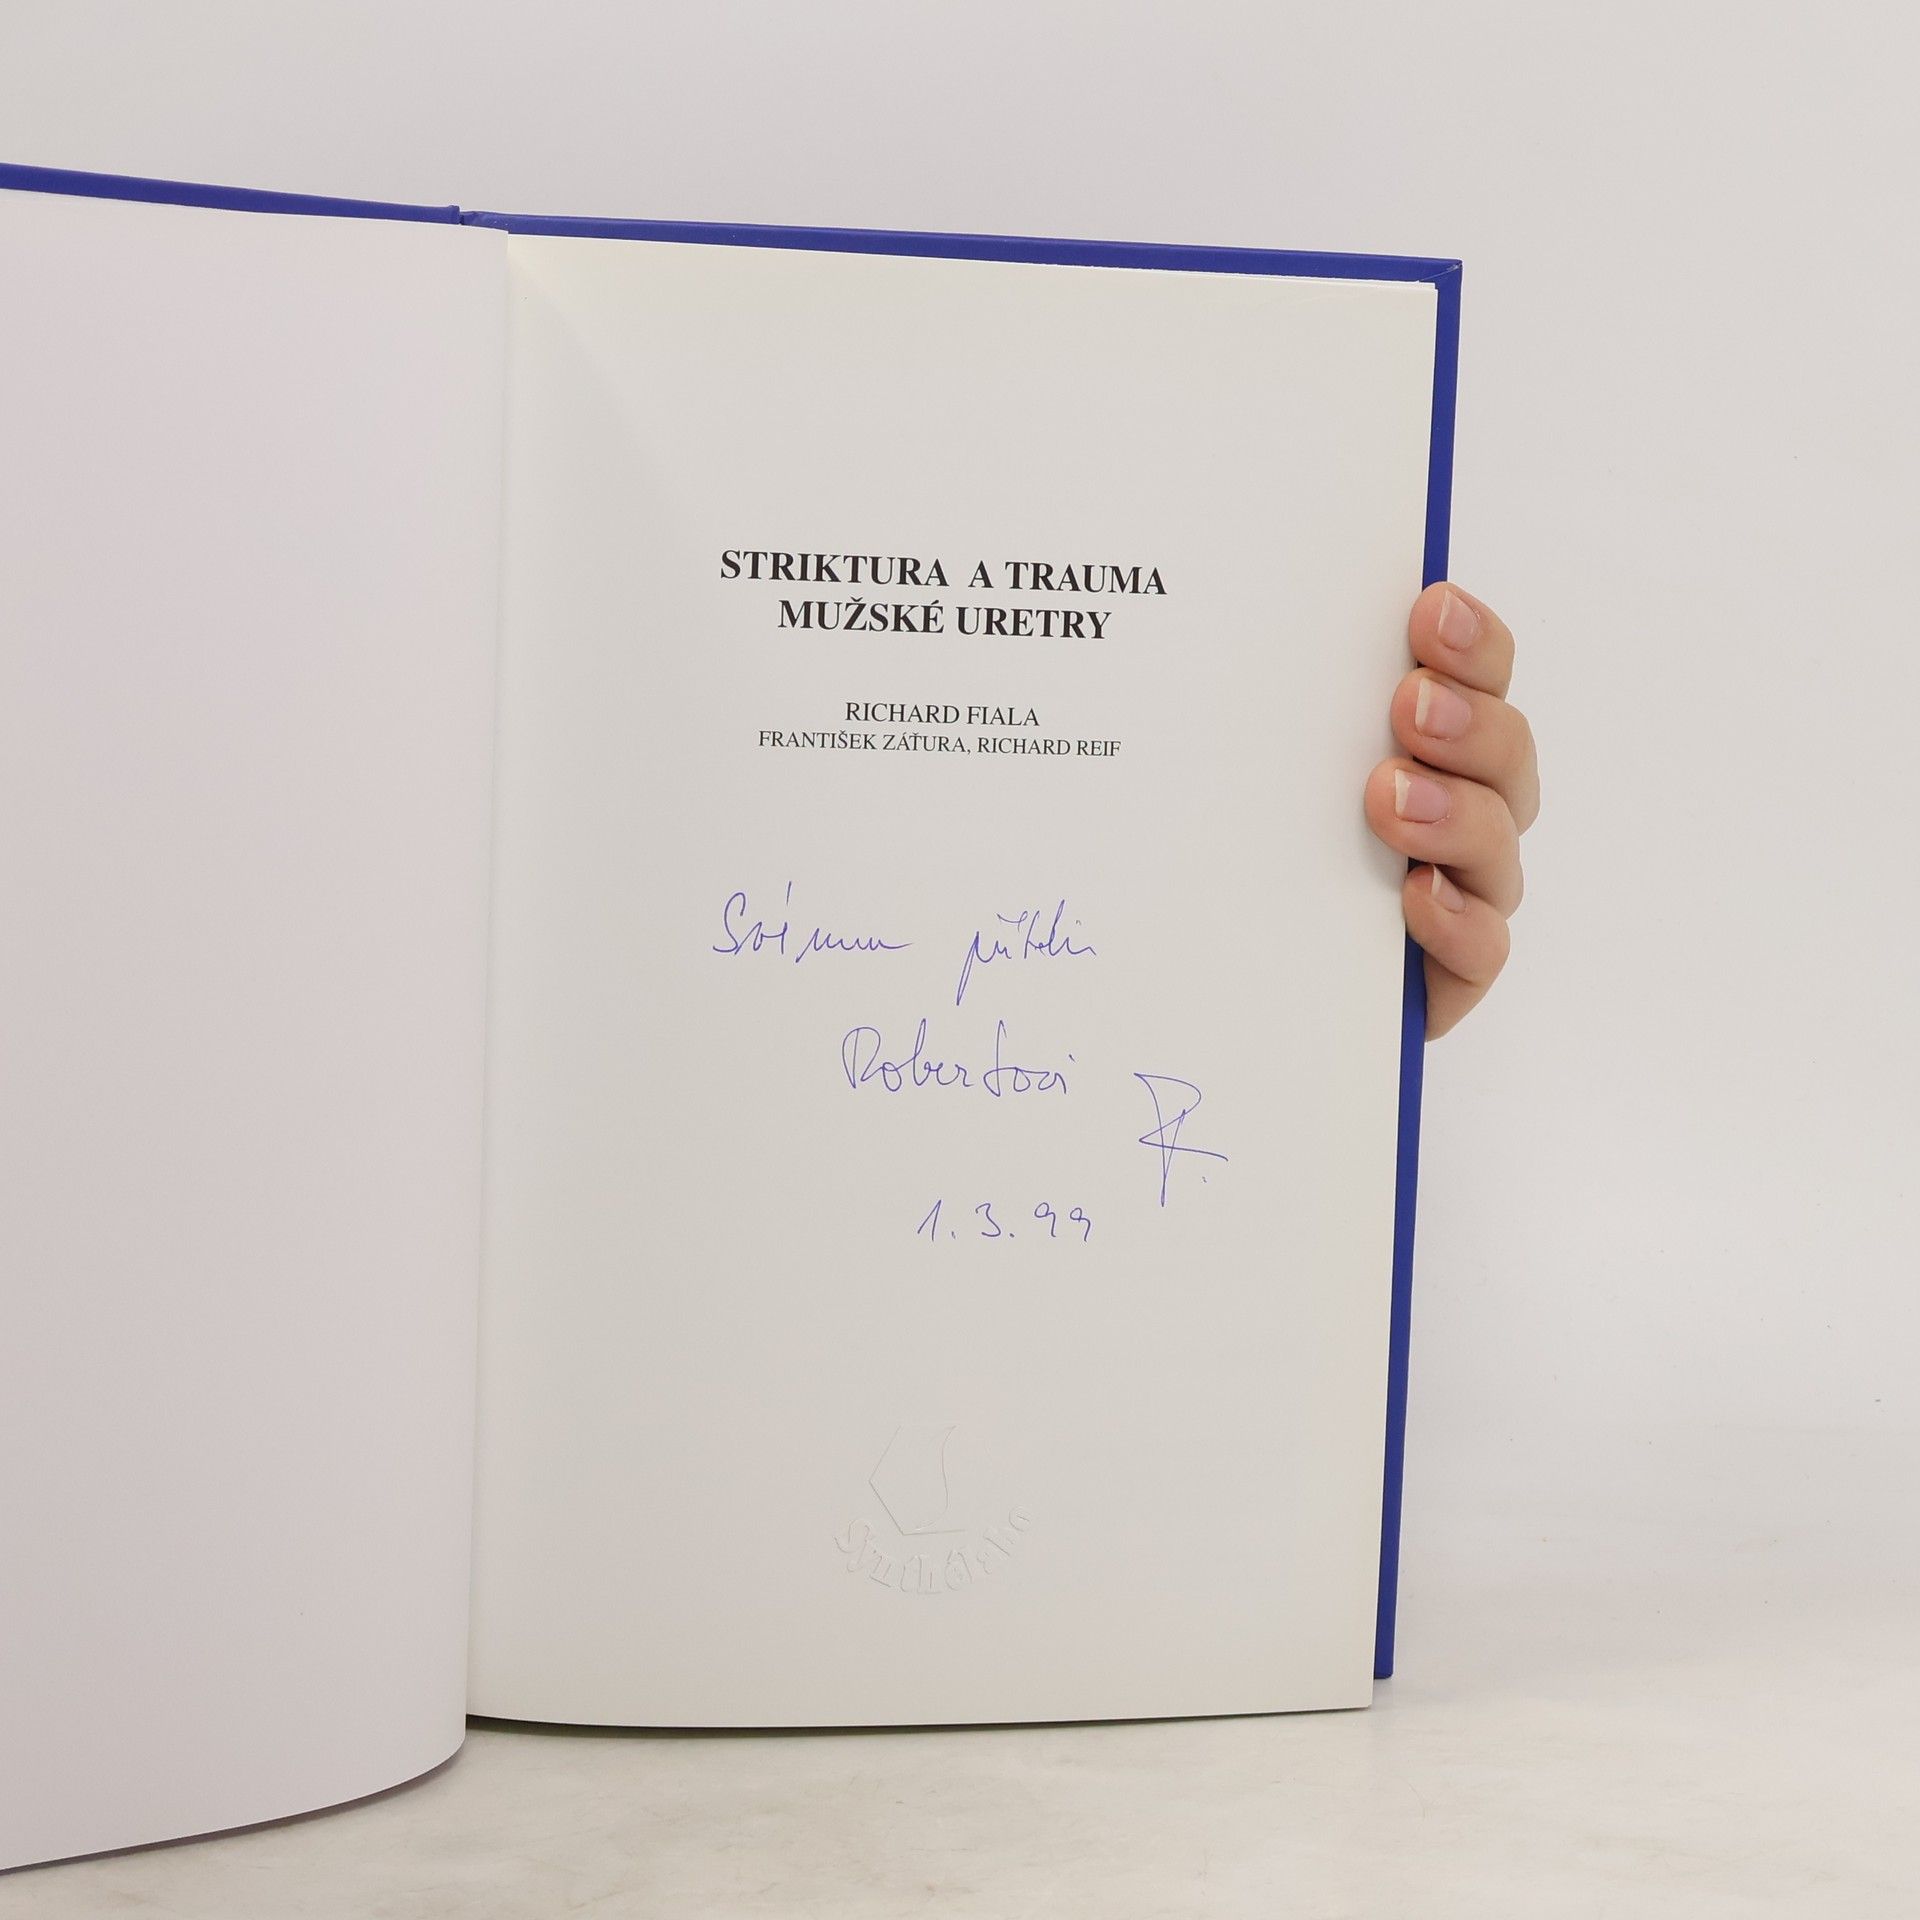 STRIKTURA A TRAUMA
MUŽSKÉ URETRY
RICHARD FIALA
FRANTIŠEK ZÁŤURA, RICHARD REIF
Svému příteli
Robertovi
1.3.99
Synthélabo